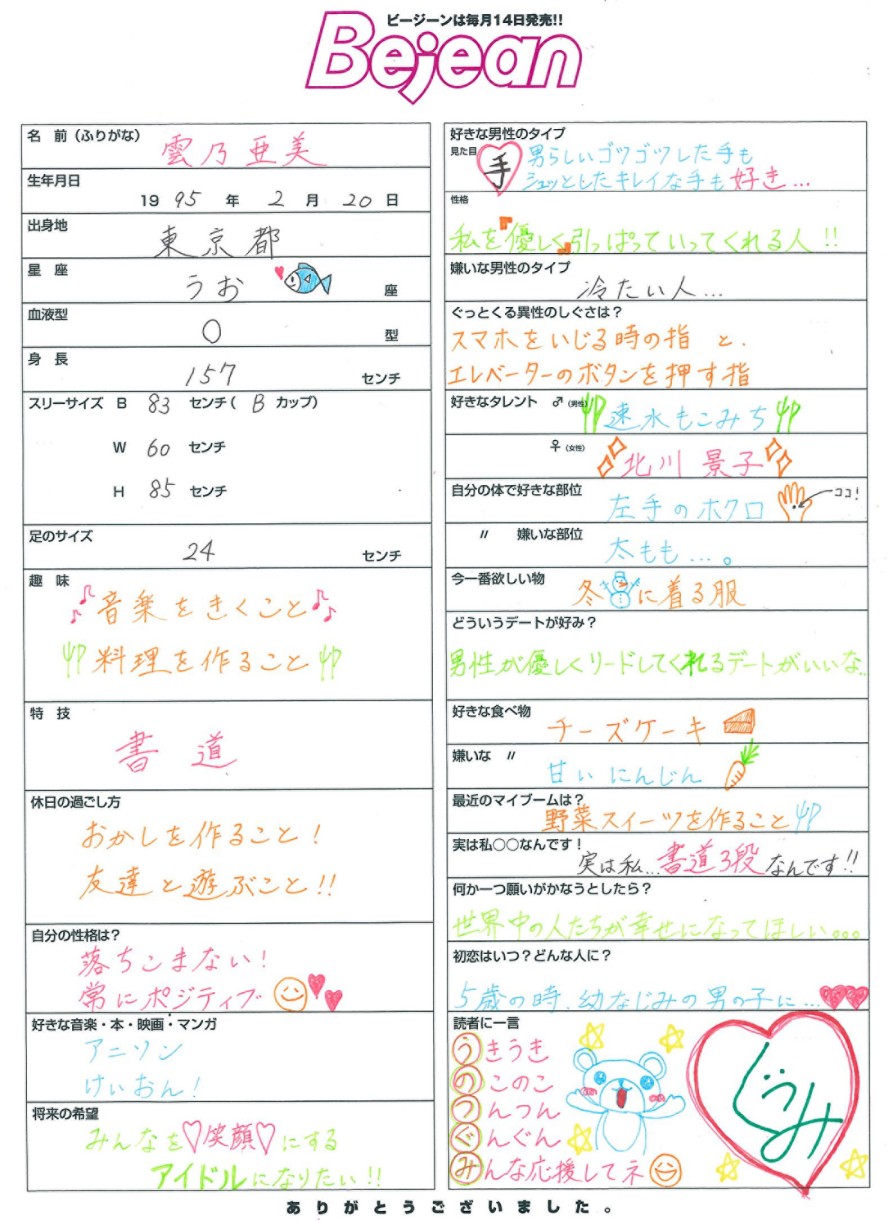 ビージーンは毎月14日発売!!
Bejean
名 前（ふりがな）
雲乃亜美
生年月日
19 95 年 2 月 20 日
出身地
東京都
星 座
うお 座
血液型
O 型
身 長
157 センチ
スリーサイズ B 83 センチ( B カップ)
W 60 センチ
H 85 センチ
足のサイズ
24 センチ
趣 味
音楽をきくこと
料理を作ること
特 技
書 道
休日の過ごし方
おかしを作ること！
友達と遊ぶこと!!
自分の性格は？
落ちこまない！
常にポジティブ
好きな音楽・本・映画・マンガ
アニソン
けいおん！
将来の希望
みんなを♡笑顔♡にする
アイドルになりたい!!
好きな男性のタイプ
見た目
手
男らしいゴツゴツした手も
シュッとしたキレイな手も好き…
性格
私を『優しく』引っぱっていってくれる人!!
嫌いな男性のタイプ
冷たい人…
ぐっとくる異性のしぐさは？
スマホをいじる時の指 と、
エレベーターのボタンを押す指
好きなタレント ♂（男性）
速水もこみち
♀（女性）
北川 景子
自分の体で好きな部位
左手のホクロ
ココ！
〃 嫌いな部位
太もも…。
今一番欲しい物
冬に着る服
どういうデートが好み？
男性が優しくリードしてくれるデートがいいな..
好きな食べ物
チーズケーキ
嫌いな 〃
甘い にんじん
最近のマイブームは？
野菜スイーツを作ること
実は私○○なんです！
実は私…書道3段なんです!!
何か一つ願いがかなうとしたら？
世界中の人たちが幸せになってほしい。。。
初恋はいつ？どんな人に？
5歳の時、幼なじみの男の子に…
読者に一言
うきうき
のこのこ
つんつん
ぐんぐん
みんな応援してネ
ありがとうございました。